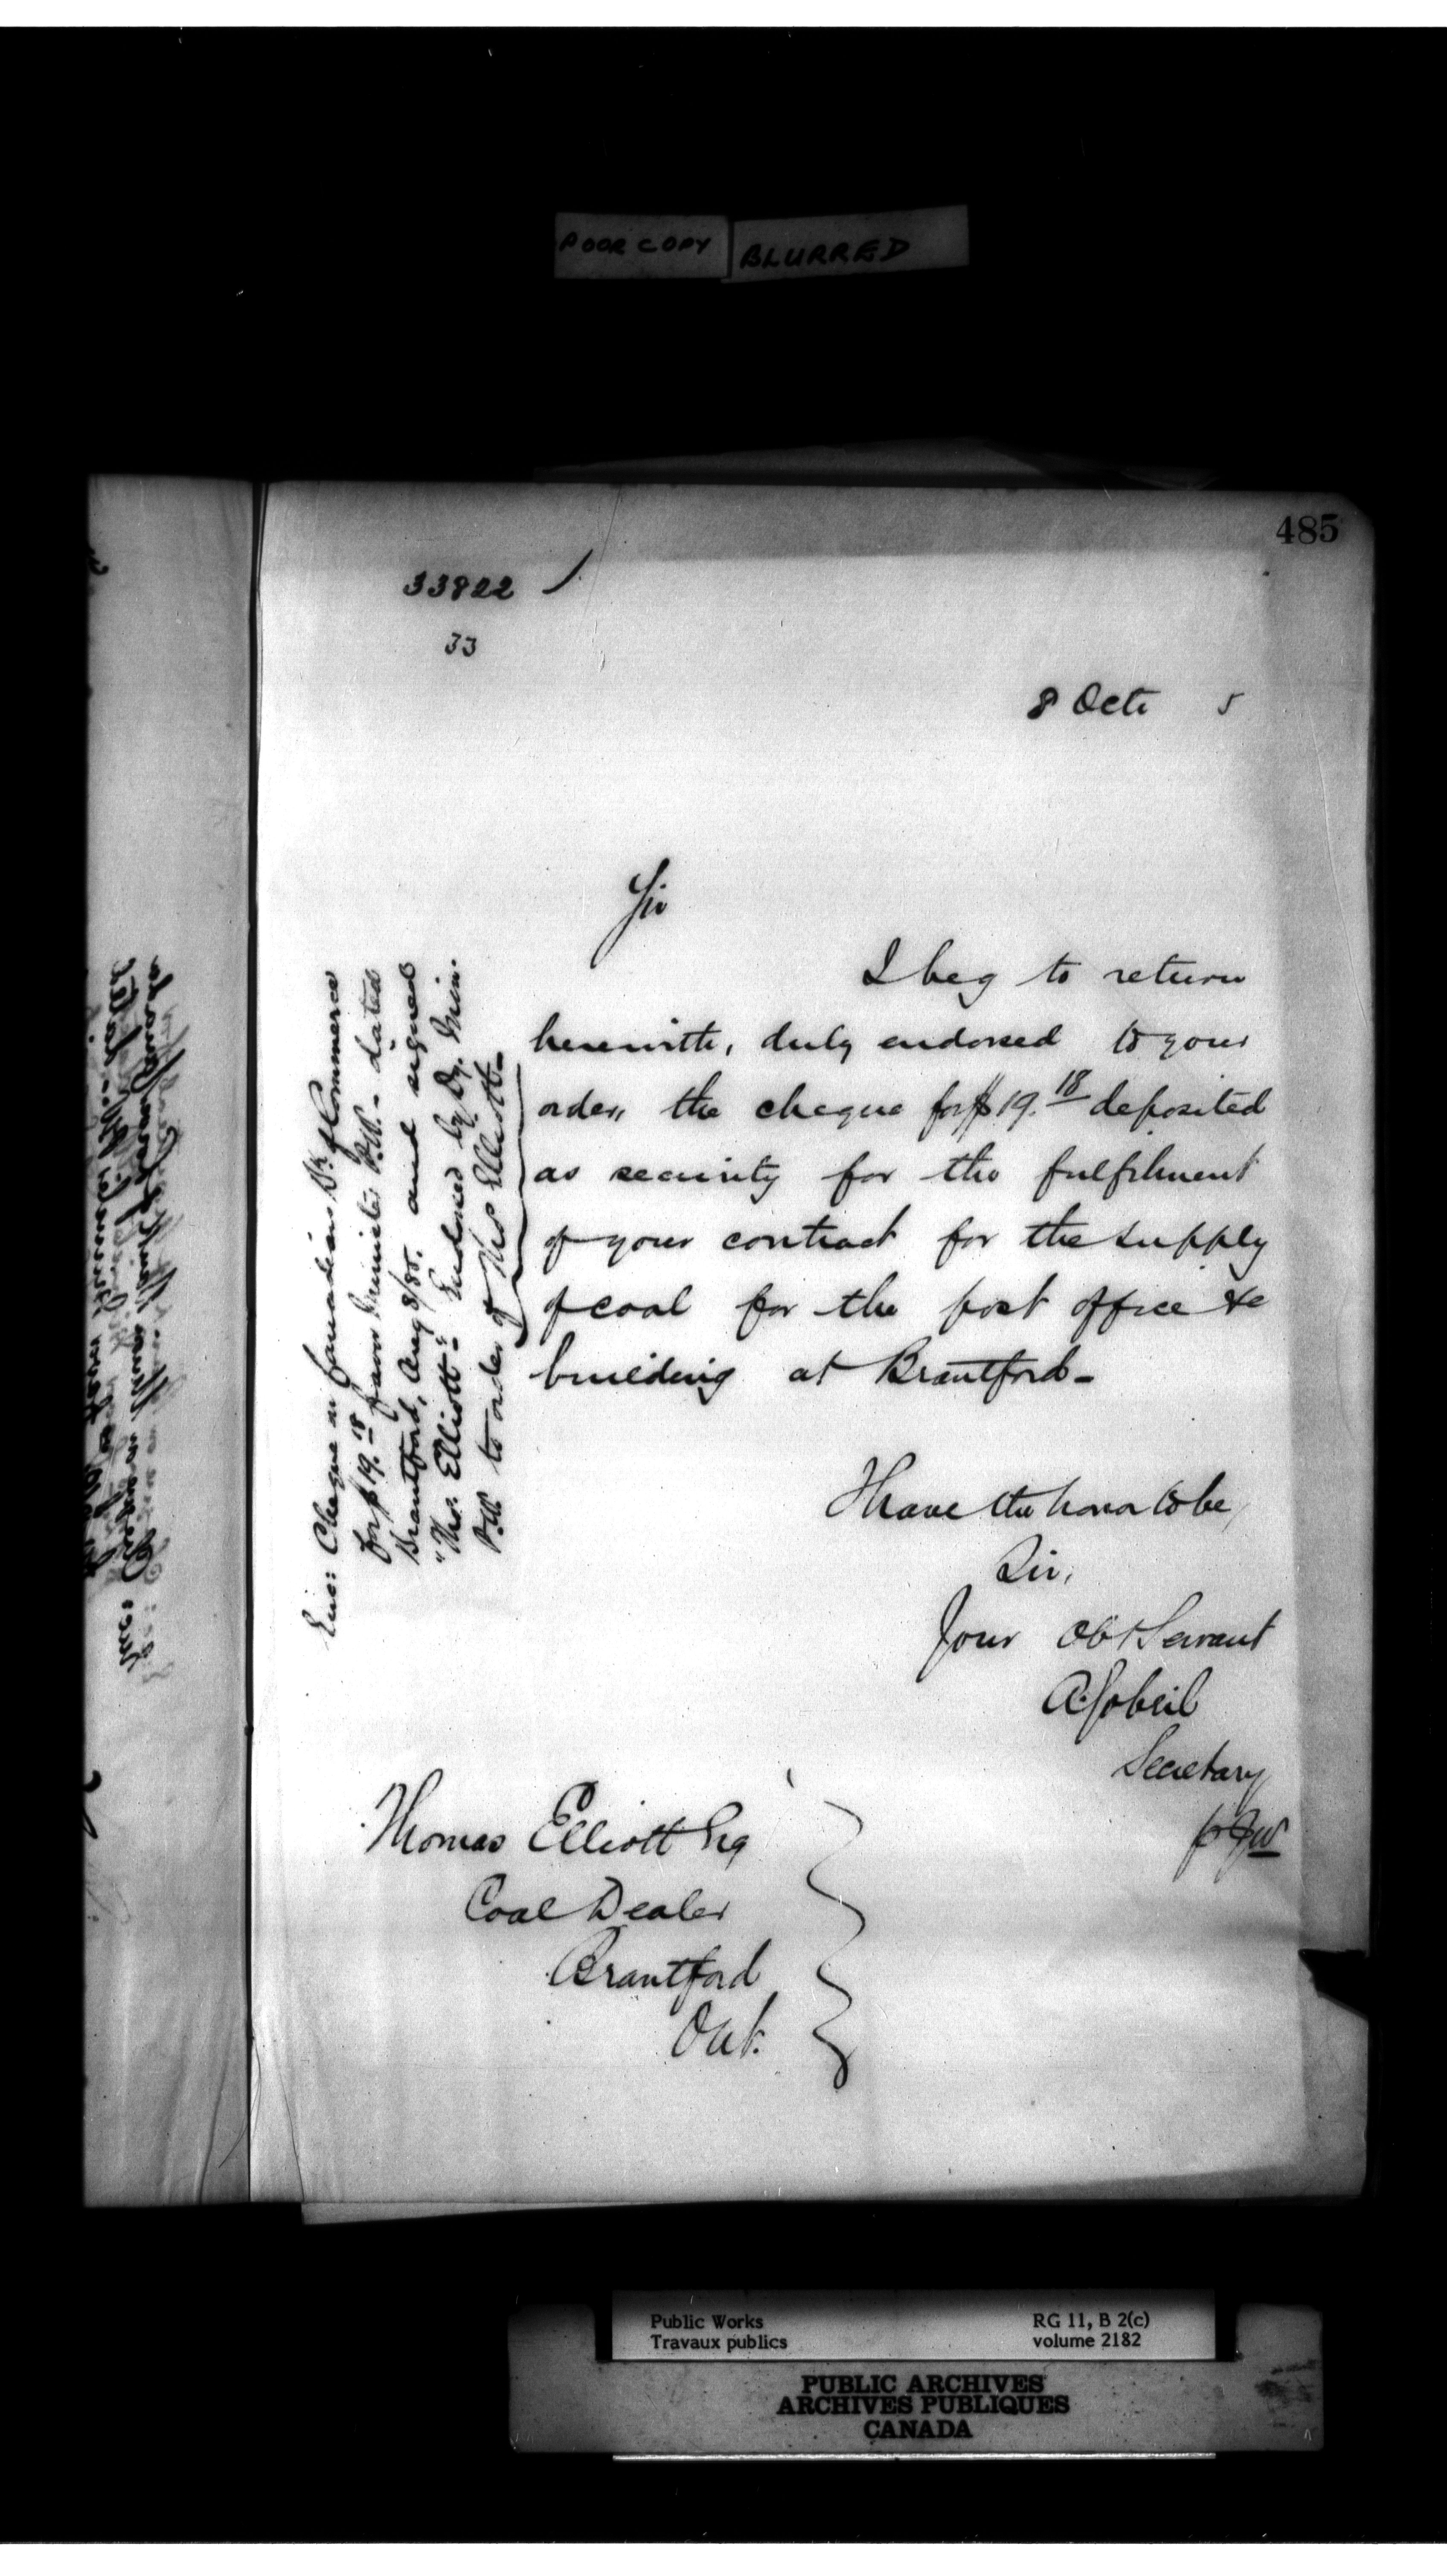 POOR COPY BLURRED
485
33822
33
8 Octr 5
Sir
I beg to return
herewith, duly endorsed to your
order, the cheque for $19.18 deposited
as security for the fulfilment
of your contract for the supply
of coal for the post office &c
building at Brantford-
Enc: Cheque on Canadian Bk of Commerce
for $19.18 favor Minister P.W. - dated
Brantford, Aug 8/85. and signed
"Thos. Elliott-" Endorsed by Dy. Min.
P.W. to order of Thos Elliott-
I have the honor to be,
Sir,
Your Obt Servant
A. Gobeil
Secretary
Thomas Elliott Esq
Coal Dealer
Brantford
Ont.
Public Works
Travaux publics
RG 11, B 2(c)
volume 2182
PUBLIC ARCHIVES
ARCHIVES PUBLIQUES
CANADA